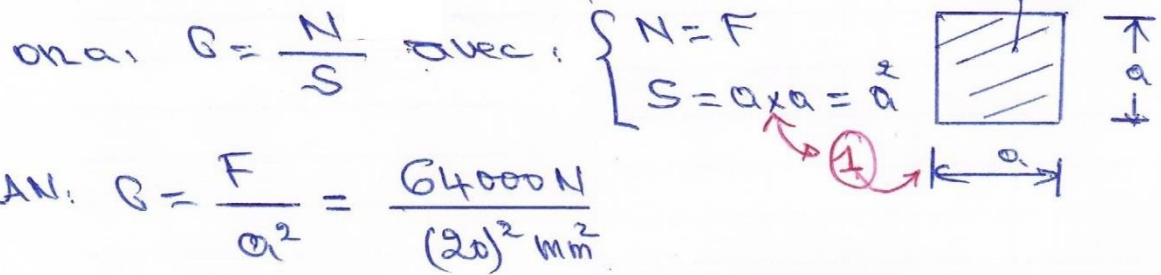 ona, σ = N/S avec : { N = F
S = a x a = a²
a
1
a
AN: σ = F/a² = 64000N/(20)² mm²